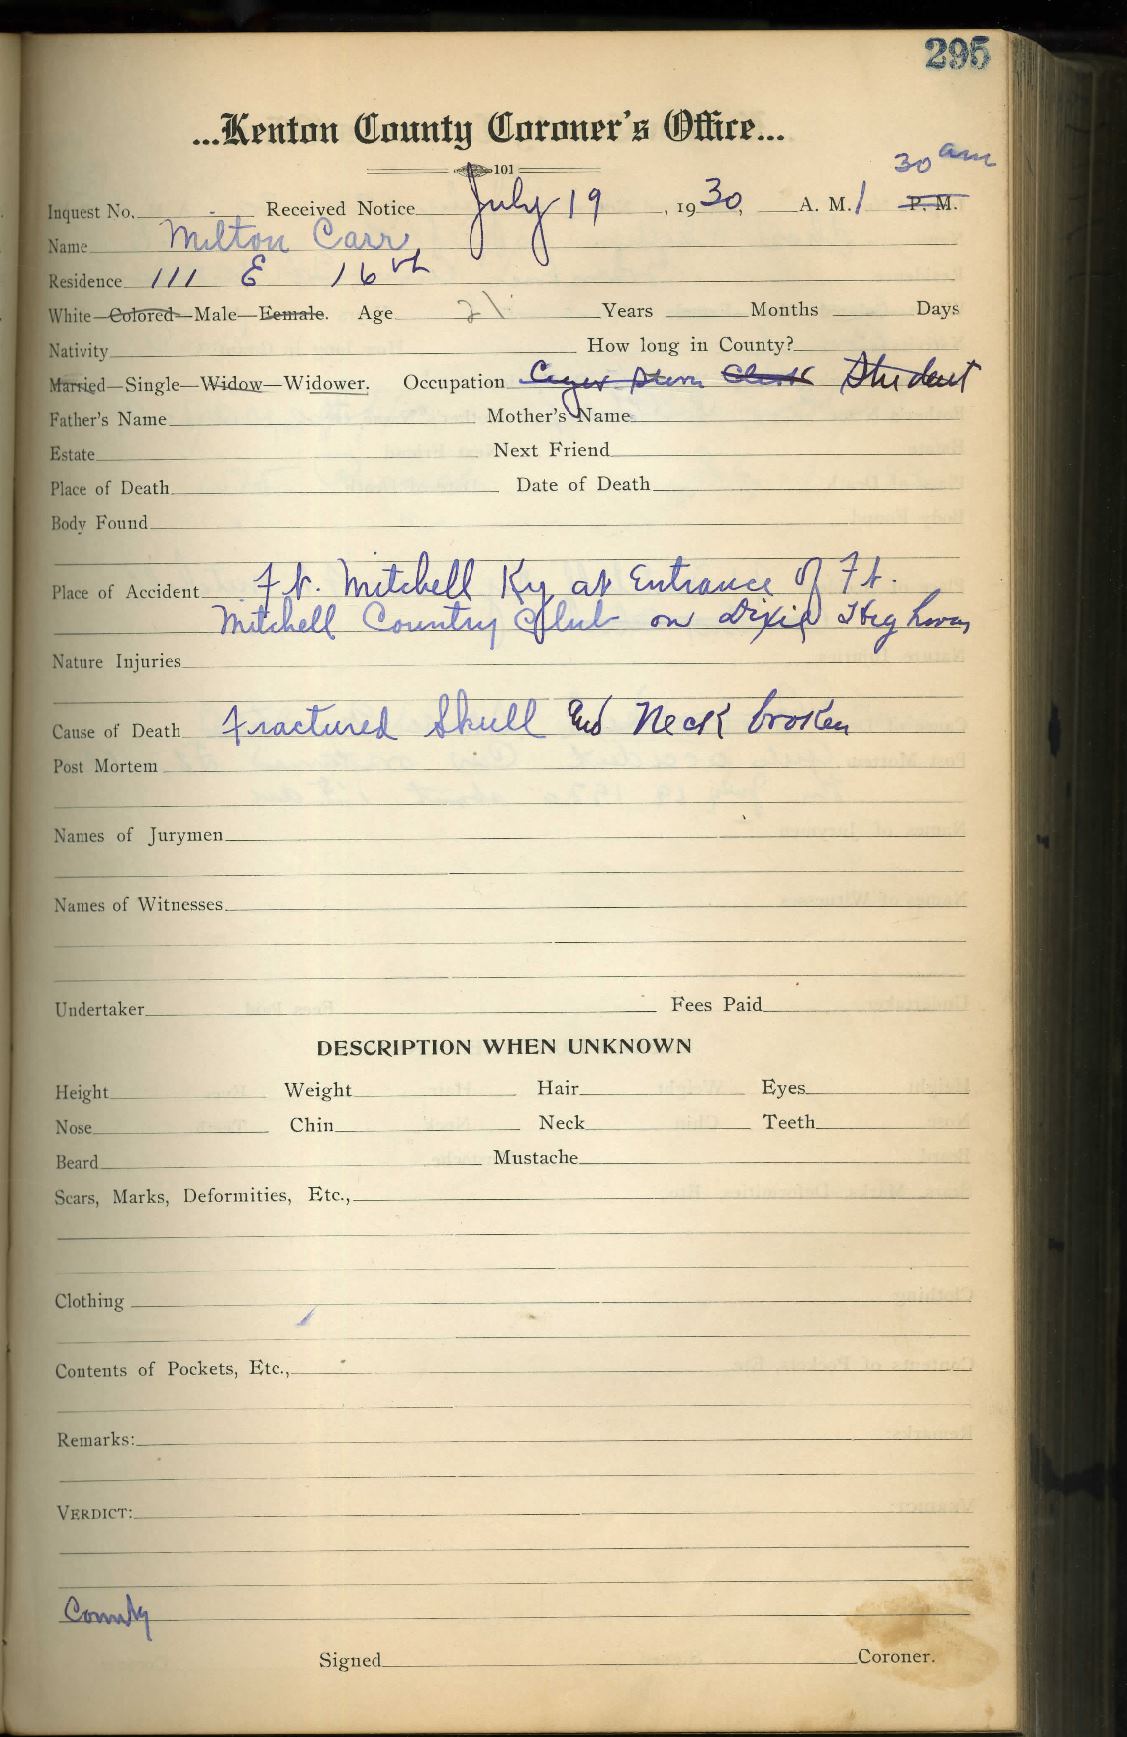 295
...Kenton County Coroner's Office...
101
30 am
Inquest No. - Received Notice July 19, 1930, A. M. 1 P. M.
Name Milton Carr
Residence 111 E 16th
White—Colored—Male—Female. Age 21 Years Months Days
Nativity How long in County?
Married—Single—Widow—Widower. Occupation Clerk Student
Father's Name Mother's Name
Estate Next Friend
Place of Death Date of Death
Body Found
Place of Accident Ft. Mitchell Ky at Entrance of Ft.
Mitchell Country Club on Dixie Highway
Nature Injuries
Cause of Death Fractured Skull and Neck broken
Post Mortem
Names of Jurymen
Names of Witnesses
Undertaker Fees Paid
DESCRIPTION WHEN UNKNOWN
Height Weight Hair Eyes
Nose Chin Neck Teeth
Beard Mustache
Scars, Marks, Deformities, Etc.,
Clothing
Contents of Pockets, Etc.,
Remarks:
VERDICT:
County
Signed Coroner.